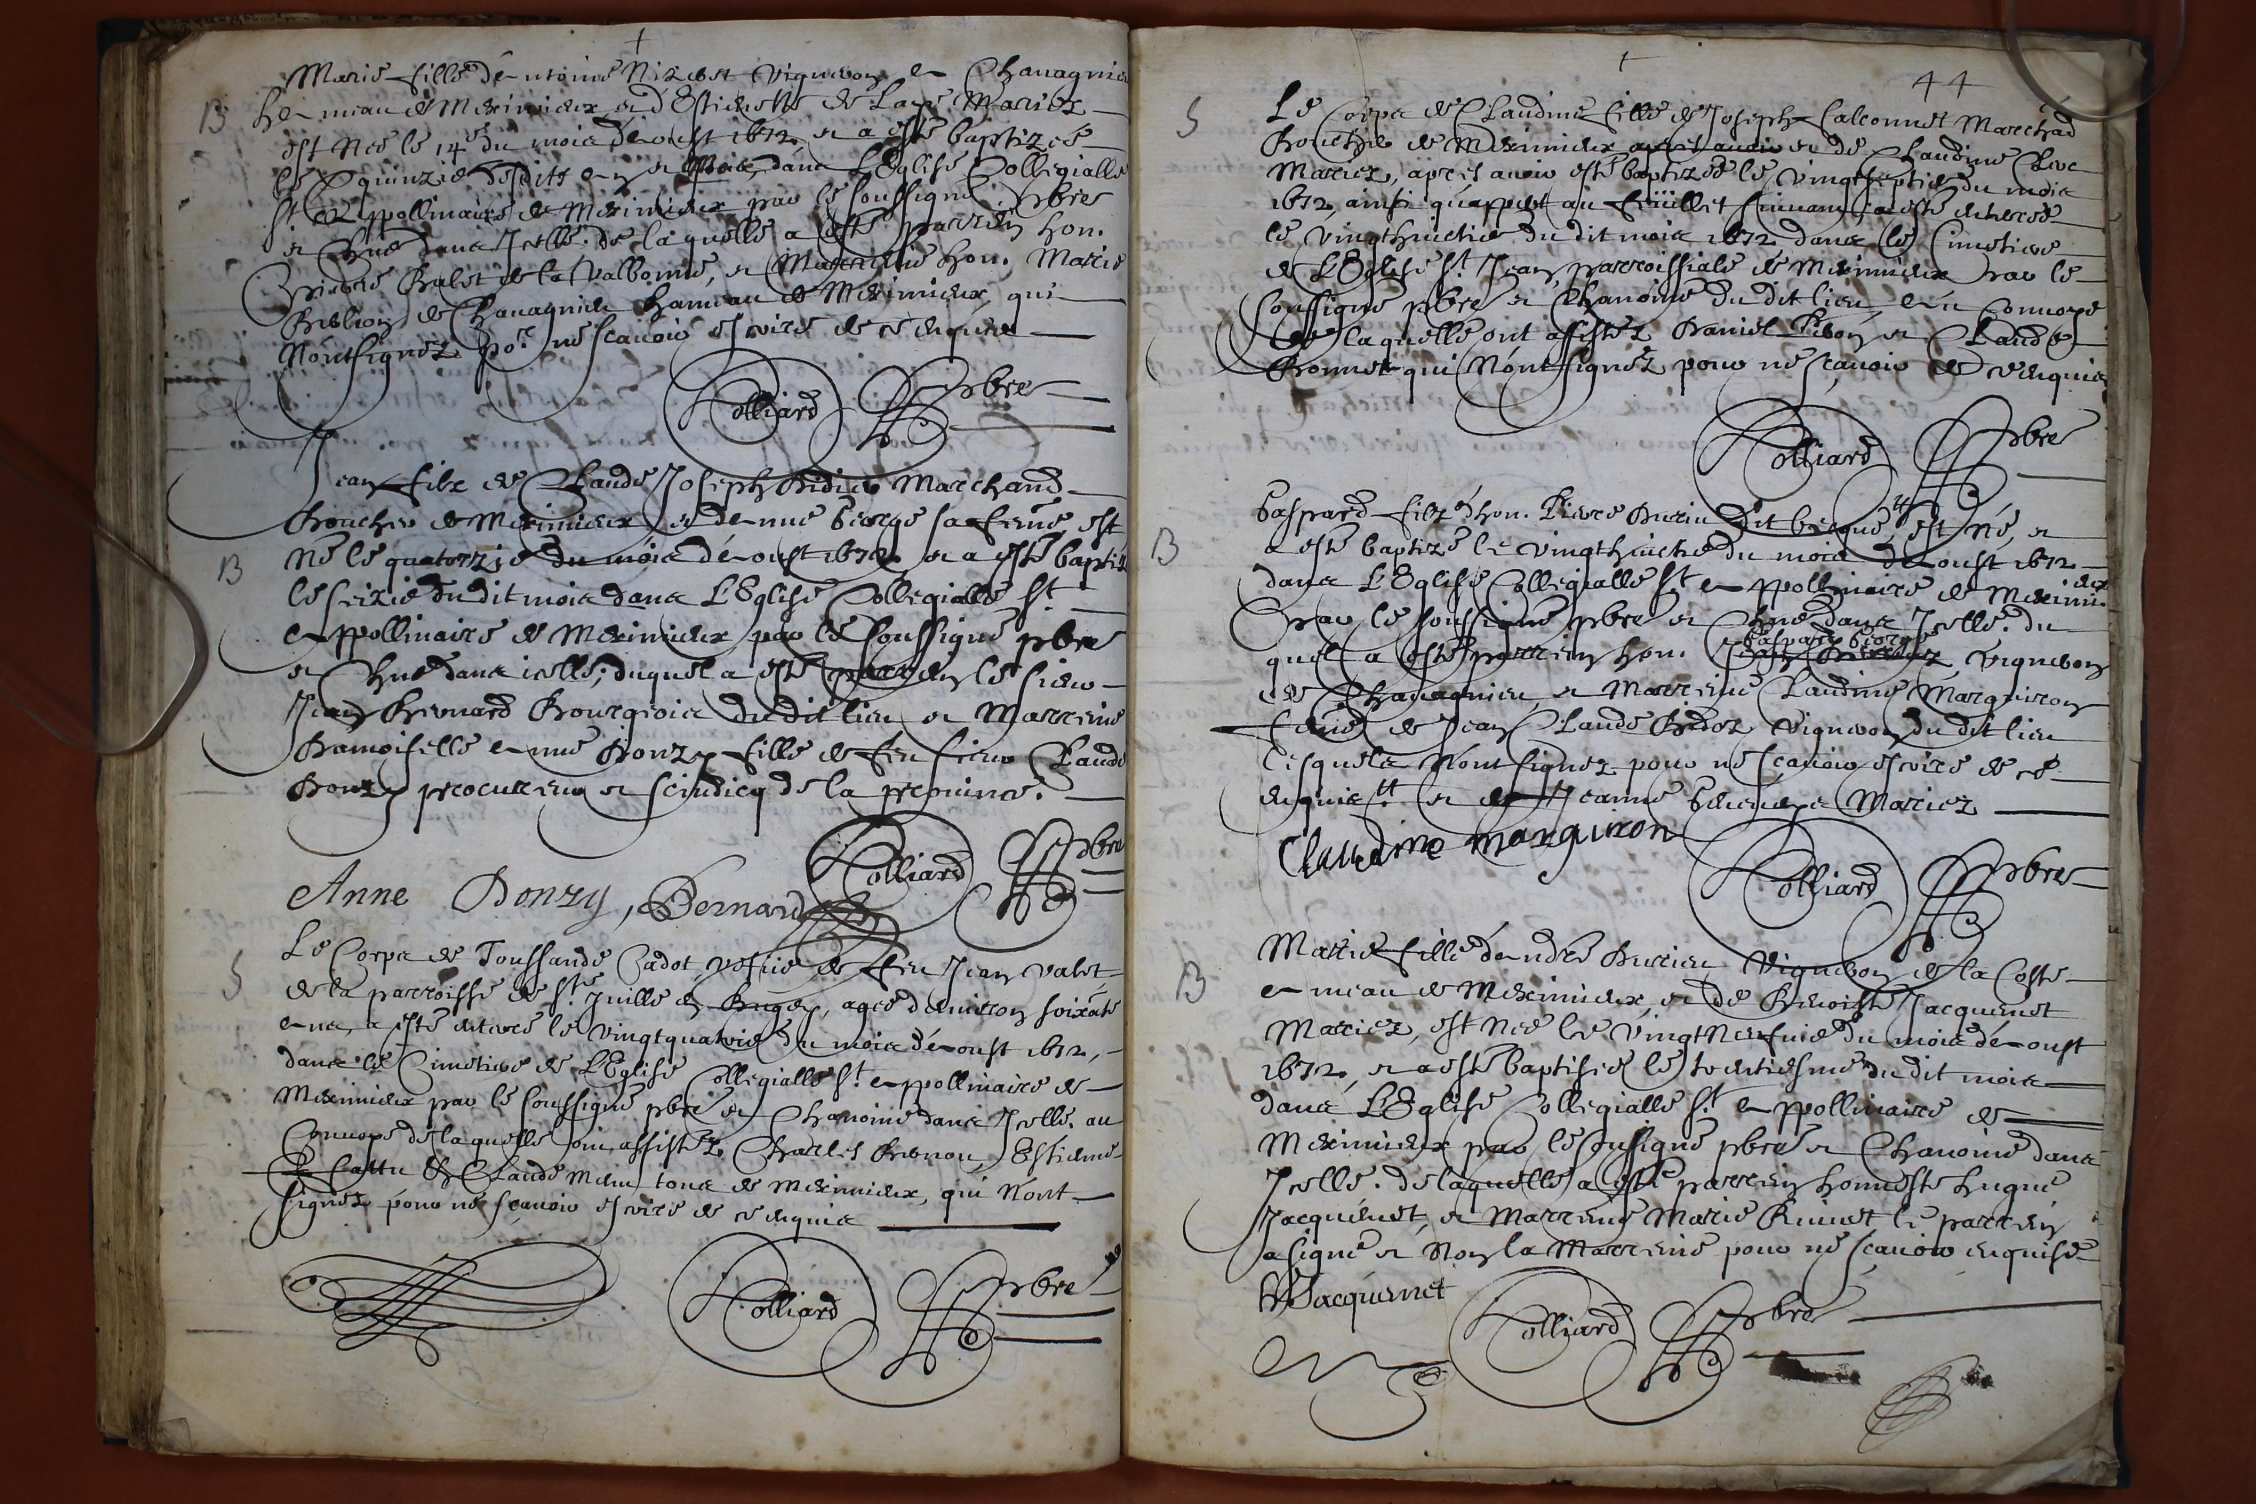 Marie fille d'Antoine Nizeret vigneron en Chanagnieu
B hameau de Meximieux et d'Estiennette de Lape Mariez
est Née le 14e du mois d'Aoust 1672, et a esté baptizeé
le quinzie desdits an et Mois dans L'Eglise Collegialle
St Appollinaire de Meximieux par le soussigné pbre
et Chne dans Icelle. de laquelle a esté parrein hon.
Pierre Balet de la Valbonne, et Marreine hon. Marie
de Chanagnieu hameau de Meximieux qui
N'ont signez por ne scavoir escrire de ce enquis
Colliard pbre
Jean fils de Claude Joseph Didier Marchand
Boucher de Meximieux et d'Anne George sa feme est
B Né le quatorzie du mois d'Aoust 1672 et a esté baptizé
le seizie du dit mois dans L'Eglise Collegialle St
Appollinaire de Meximieux par le soussigné pbre
et Chne dans icelle; duquel a esté parrein le sieur
Jean Bernard Bourgeois du dit lieu et Marreine
Damoiselle Anne Donzy fille de feu sieur Claude
Donzy procureur et scindicq de la province.
Colliard pbre
Anne Donzy, Bernard
S Le Corps de Toussande Cadot vefue de feu Jean Valet
de la parroisse de Ste Juille en Bugey, ageé d'environ soixáte
ans, a esté enterré le vingtquatrie du mois d'Aoust 1672,
dans le Cimetiere de L'Eglise Collegialle St Appollinaire de
Meximieux par le soussigné pbre et Chanoine dans Icelle. au
Convoye de laquelle ont assistez Charles Estienne
Cattu & Claude tous de Meximieux, qui N'ont
signez pour ne sçavoir escrire de ce enquis
Colliard pbre
44
S Le Corps de Claudine fille de Joseph Falconnet Marchad
Boucher de Meximieux et de Claudine
Mariez, apres avoir esté baptizeé le vingtseptie du mois
1672, ainsi qu'appert au feüillet suivant, a esté enterreé
le vingthuictie du dit mois 1672 dans le Cimetiere
de L'Eglise St Jean parroissiale de Meximieux par le
soussigné pbre et Chanoine du dit lieu, au Convoye
de laquelle ont assistez Daniel et Claude
Bonnet qui N'ont signez pour ne sçavoir de ce enquis
Colliard pbre
Gaspard filz d'hon. Pierre Durieu dit est Né, et
B a esté baptizé le vingthuictie du mois d'Aoust 1672
dans L'Eglise Collegialle St Appollinaire de Meximieux
par le soussigné pbre et Chne dans Icelle. du
quel a esté parrein hon. Gaspard George vigneron
de Chanagnieu et Marreine Claudine Marguiron
feme de Jean Claude Bidoz vigneron du dit lieu
lesquels N'ont signez pour ne sçavoir escrire de ce
enquis tt et de Jeanne Mariez
Claudine marguiron
Colliard pbre
Marie fille d'Andre Durieu vigneron de la Coste
B Ameau de Meximieux, et de Benoiste Jacquemet
Mariez, est Neé le vingtNeufuie du mois d'Aoust
1672, et a esté Baptiseé le trentiesme du dit mois
dans L'Eglise Collegialle St Appollinaire de
Meximieux par le sousigné pbre et Chanoine dans
Icelle. de laquelle a esté parrein honneste hugue
Jacquemet, et Marreine Marie le parrein
a signé et Non la Marreine pour ne sçavoir enquise
h Jacquemet
Colliard pbre